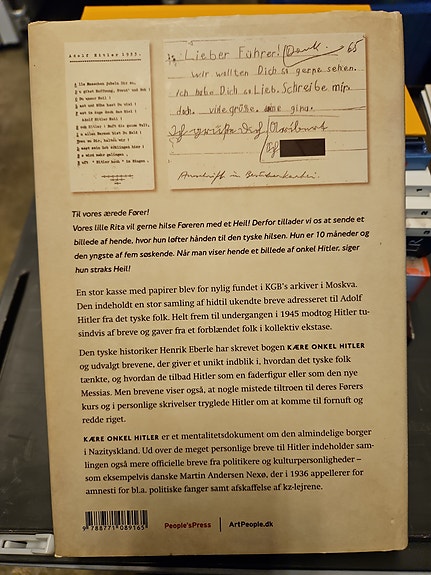 Adolf Hitler 1933.
Lieber Führer! Dank. 65
Wir wollten Dich so gerne sehen.
Ich habe Dich so Lieb. Schreibe mir
doch. viele grüße. eine gina.
Til vores ærede Fører!
Vores lille Rita vil gerne hilse Føreren med et Heil! Derfor tillader vi os at sende et
billede af hende, hvor hun løfter hånden til den tyske hilsen. Hun er 10 måneder og
den yngste af fem søskende. Når man viser hende et billede af onkel Hitler, siger
hun straks Heil!
En stor kasse med papirer blev for nylig fundet i KGB's arkiver i Moskva.
Den indeholdt en stor samling af hidtil ukendte breve adresseret til Adolf
Hitler fra det tyske folk. Helt frem til undergangen i 1945 modtog Hitler tu-
sindvis af breve og gaver fra et forblændet folk i kollektiv ekstase.
Den tyske historiker Henrik Eberle har skrevet bogen KÆRE ONKEL HITLER
og udvalgt brevene, der giver et unikt indblik i, hvordan det tyske folk
tænkte, og hvordan de tilbad Hitler som en faderfigur eller som den nye
Messias. Men brevene viser også, at nogle mistede tiltroen til deres Førers
kurs og i personlige skrivelser tryglede Hitler om at komme til fornuft og
redde riget.
KÆRE ONKEL HITLER er et mentalitetsdokument om den almindelige borger
i Nazityskland. Ud over de meget personlige breve til Hitler indeholder sam-
lingen også mere officielle breve fra politikere og kulturpersonligheder –
som eksempelvis danske Martin Andersen Nexø, der i 1936 appellerer for
amnesti for bl.a. politiske fanger samt afskaffelse af kz-lejrene.
9 788771 089165
People'sPress | ArtPeople.dk